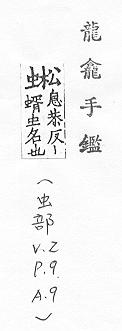 龍龕手鑑
蜙
息恭反丨
蝑虫名也
(虫部 V.2 P.9. A.9)